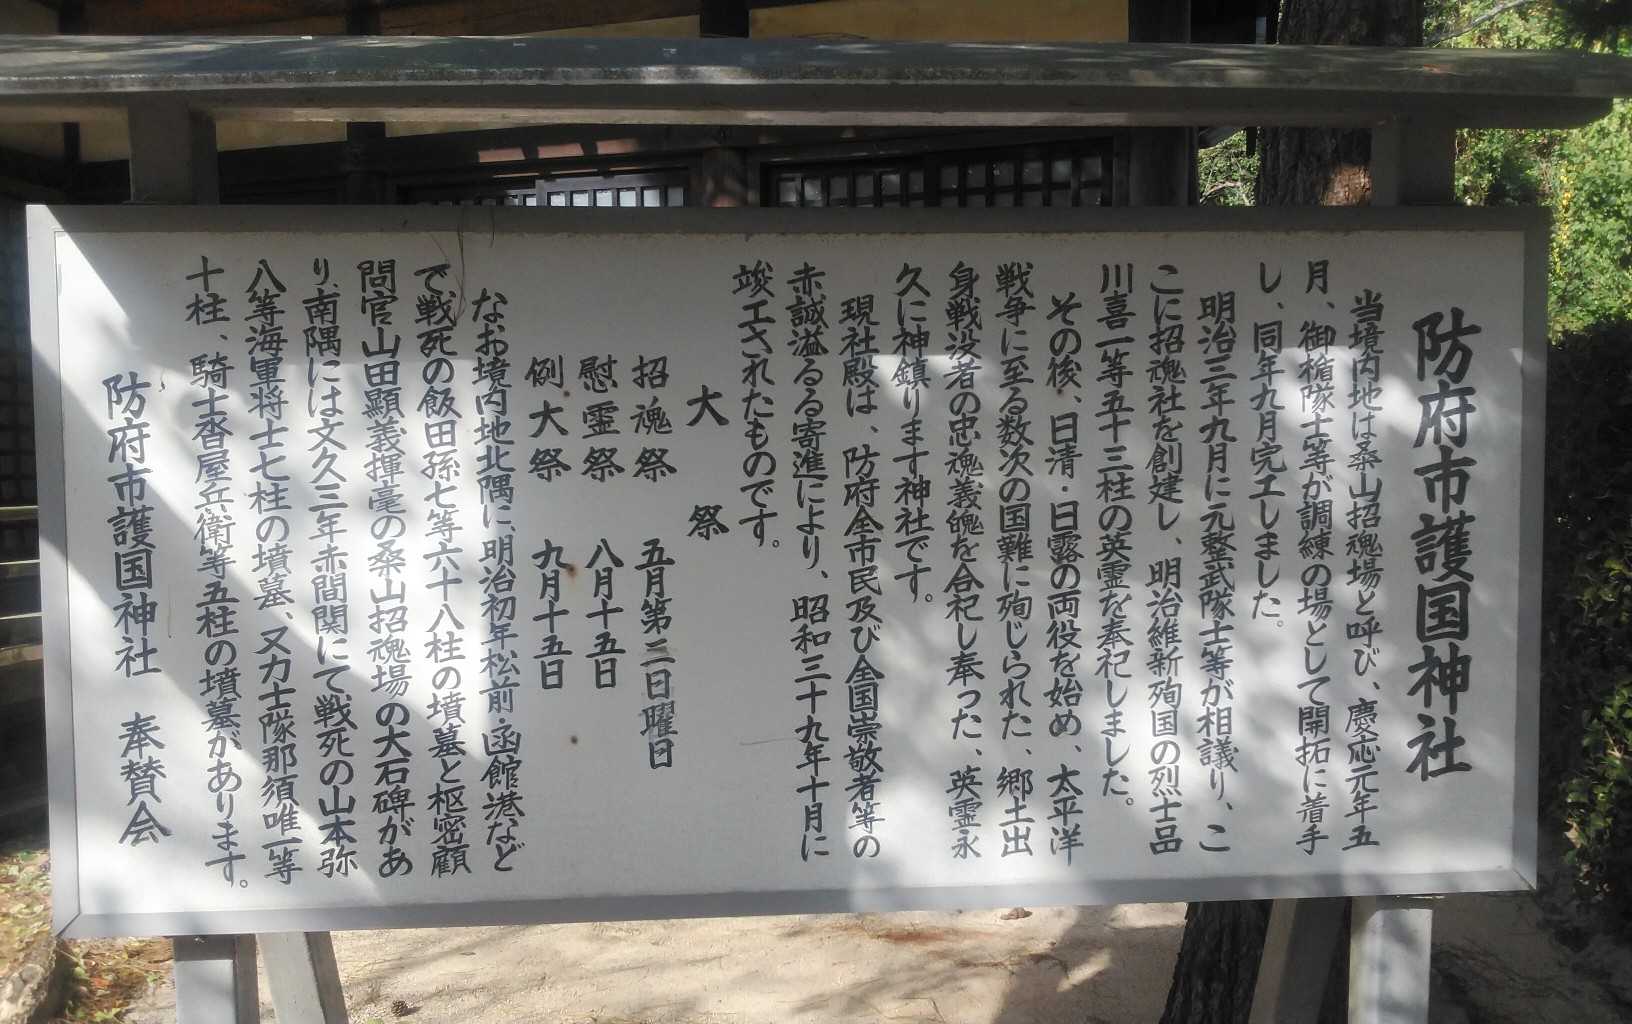 防府市護国神社
当境内地は桑山招魂場と呼び、慶応元年五
月、御楯隊士等が調練の場として開拓に着手
し、同年九月完工しました。
明治三年九月に元整武隊士等が相議り、こ
こに招魂社を創建し、明治維新殉国の烈士品
川喜一等五十三柱の英霊を奉祀しました。
その後、日清・日露の両役を始め、太平洋
戦争に至る数次の国難に殉じられた、郷土出
身戦没者の忠魂義魄を合祀し奉った、英霊永
久に神鎮ります神社です。
現社殿は、防府全市民及び全国崇敬者等の
赤誠溢るる寄進により、昭和三十九年十月に
竣工されたものです。
大祭
招魂祭 五月第二日曜日
慰霊祭 八月十五日
例大祭 九月十五日
なお境内地北隅に、明治初年松前・函館港など
で戦死の飯田孫七等六十八柱の墳墓と枢密顧
問官山田顯義揮毫の桑山招魂場の大石碑があ
り、南隅には文久三年赤間關にて戦死の山本弥
八等海軍将士七柱の墳墓、又力士隊那須唯一等
十柱、騎士沓屋兵衛等五柱の墳墓があります。
防府市護国神社 奉賛会